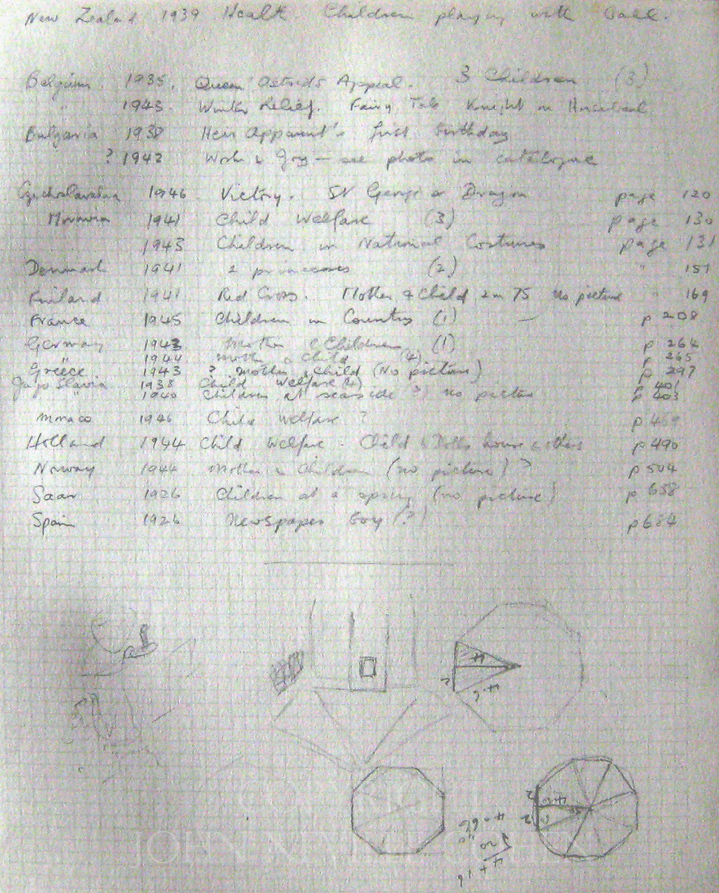 New Zealand 1939 Health. Children playing with Ball.
Belgium 1935. Queen Astrid's Appeal. 3 Children (3)
" 1943. Winter Relief. Fairy Tale Knight on Horseback
Bulgaria 1938 Heir Apparent's first birthday
? 1942 Work & Joy — see photo in catalogue
1946 Victory. St George & Dragon page 120
Moravia 1941 Child Welfare (3) page 130
1943 Children in National Costumes page 131
Denmark 1941 2 princesses (2) " 151
Finland 1941 Red Cross. Mother & Child 2m 75 No picture " 169
France 1945 Children in Country (1) — p 208
Germany 1943 Mother & Children (1) p 264
" 1944 Mother & Child (4) p 265
Greece 1943 ? Mother & Child (No picture) p 297
Jugo Slavia 1938 Child Welfare (4) p 401
" 1940 Children at seaside no picture p 403
Monaco 1946 Child Welfare ? p 469
Holland 1944 Child Welfare - Child & Dolls house & others p 490
Norway 1944 Mother & Children (no picture) ? p 504
Saar 1926 Children at a (no picture) p 658
Spain 1926 Newspaper boy (?) p 684
COPYRIGHT
JOHN NEVILLE COHEN